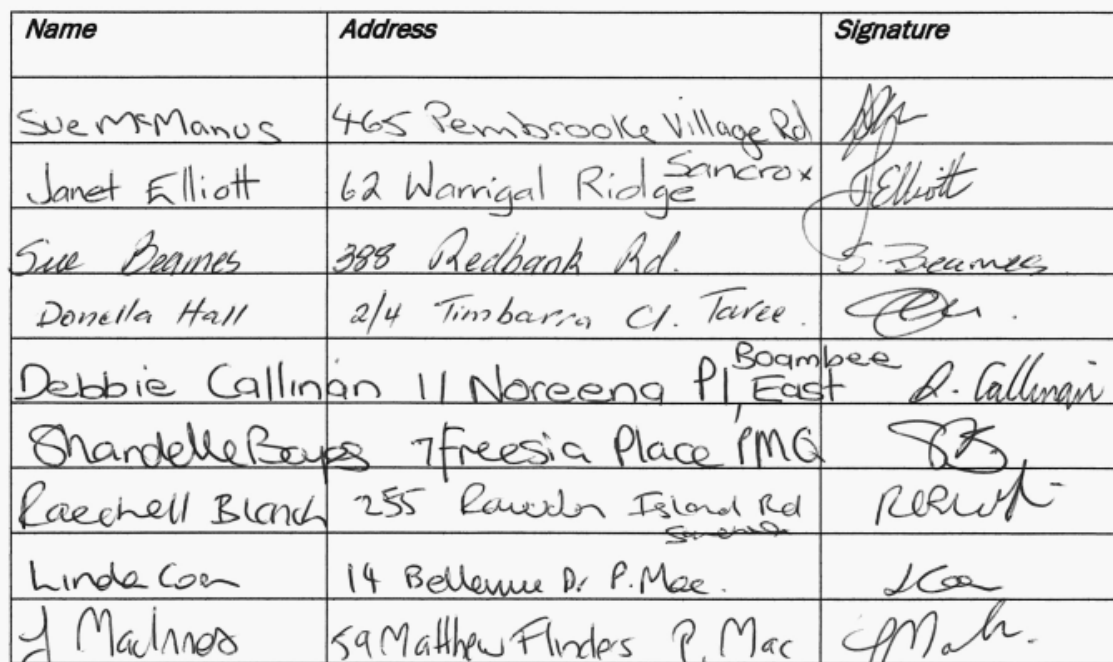 Name Address Signature
Sue McManus 465 Pembrooke Village Rd
Janet Elliott 62 Warrigal Ridge Sancrox J Elliott
Sue Beames 388 Redbank Rd. S. Beames
Donella Hall 2/4 Timbarra Cl. Taree.
Debbie Callinan 11 Noreena Pl, Boambee East D. Callinan
Shandelle 7 Freesia Place PMQ SB
Raechell Blanch 255 Rawdon Island Rd
Linda Coe 14 Bellevue Dr P.Mac. L Coe
J MacInnes 59 Matthew Flinders P. Mac